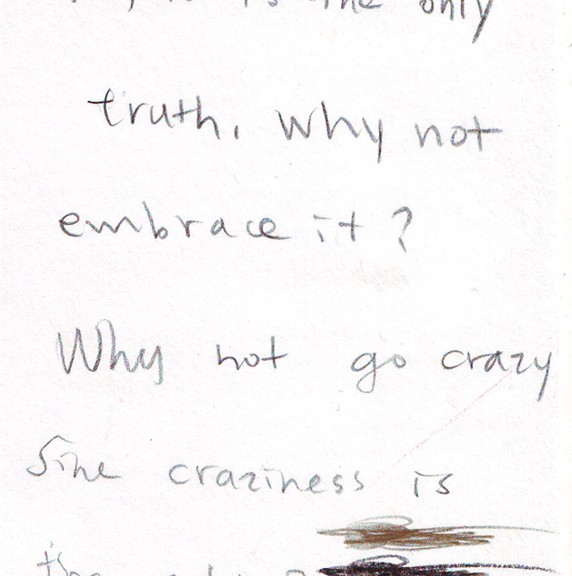 is the only
truth, why not
embrace it?
Why not go crazy
Sine craziness is
the